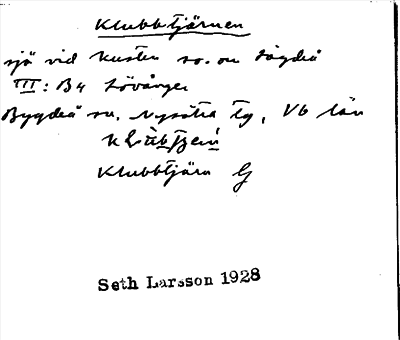 Klubbtjärnen
sjö vid kusten so. om Sögdeå
III: B4 Lövånger
Bygdeå sn. Nysätra tg, Vb län
Klubbtjärn G
Seth Larsson 1928